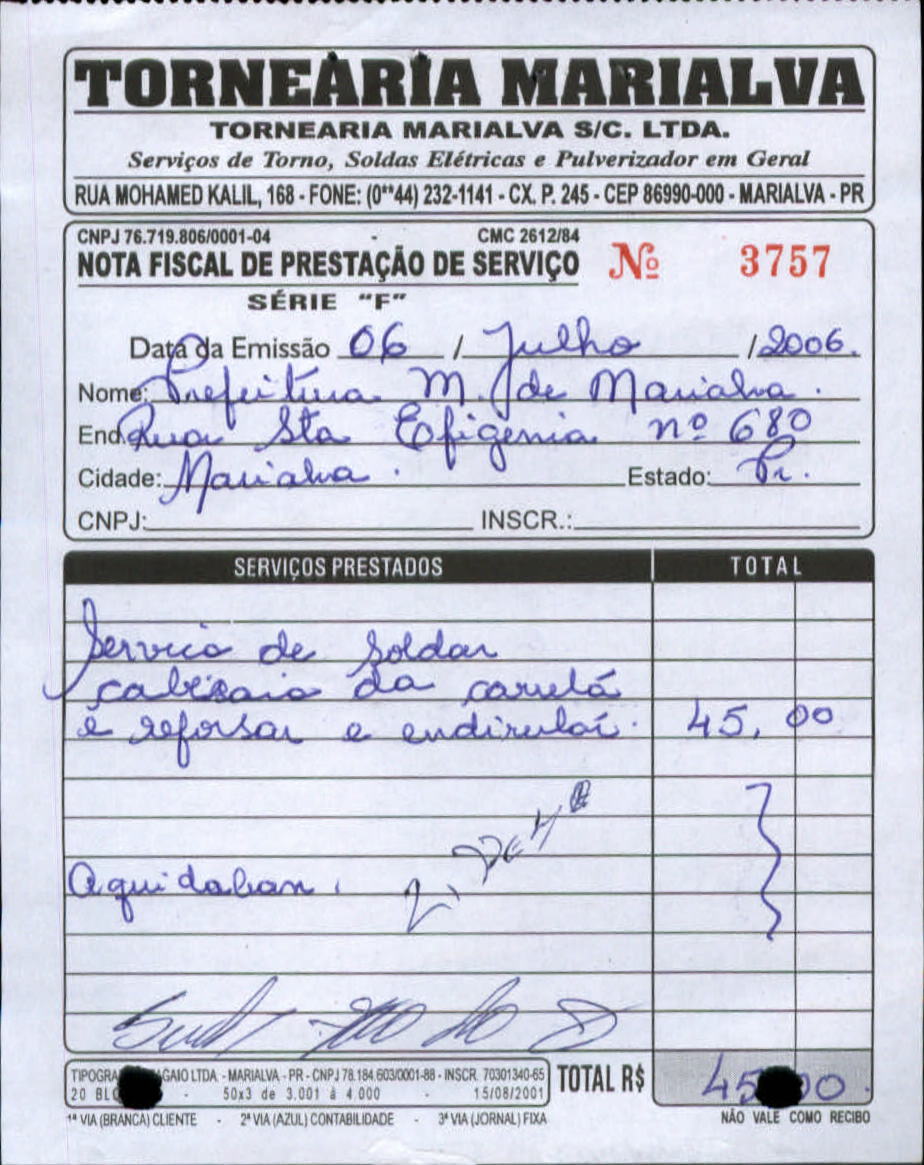 TORNEARIA MARIALVA
TORNEARIA MARIALVA S/C. LTDA.
Serviços de Torno, Soldas Elétricas e Pulverizador em Geral
RUA MOHAMED KALIL, 168 - FONE: (0**44) 232-1141 - CX. P. 245 - CEP 86990-000 - MARIALVA - PR
CNPJ 76.719.806/0001-04 - CMC 2612/84
NOTA FISCAL DE PRESTAÇÃO DE SERVIÇO Nº 3757
SÉRIE "F"
Data da Emissão 06 / Julho / 2006.
Nome: Prefeitura M. de Marialva.
End. Rua Sta Efigenia nº 680
Cidade: Marialva. Estado: Pr.
CNPJ: INSCR.:
SERVIÇOS PRESTADOS TOTAL
Servico de soldar
da
e reforsar e 45,00
Aquidaban.
TIPOGRA AGAIO LTDA. - MARIALVA - PR - CNPJ 78.184.603/0001-88 - INSCR. 70301340-65
20 BL 50x3 de 3.001 à 4.000 - 15/08/2001
TOTAL R$ 45 00.
1ª VIA (BRANCA) CLIENTE - 2ª VIA (AZUL) CONTABILIDADE - 3ª VIA (JORNAL) FIXA
NÃO VALE COMO RECIBO